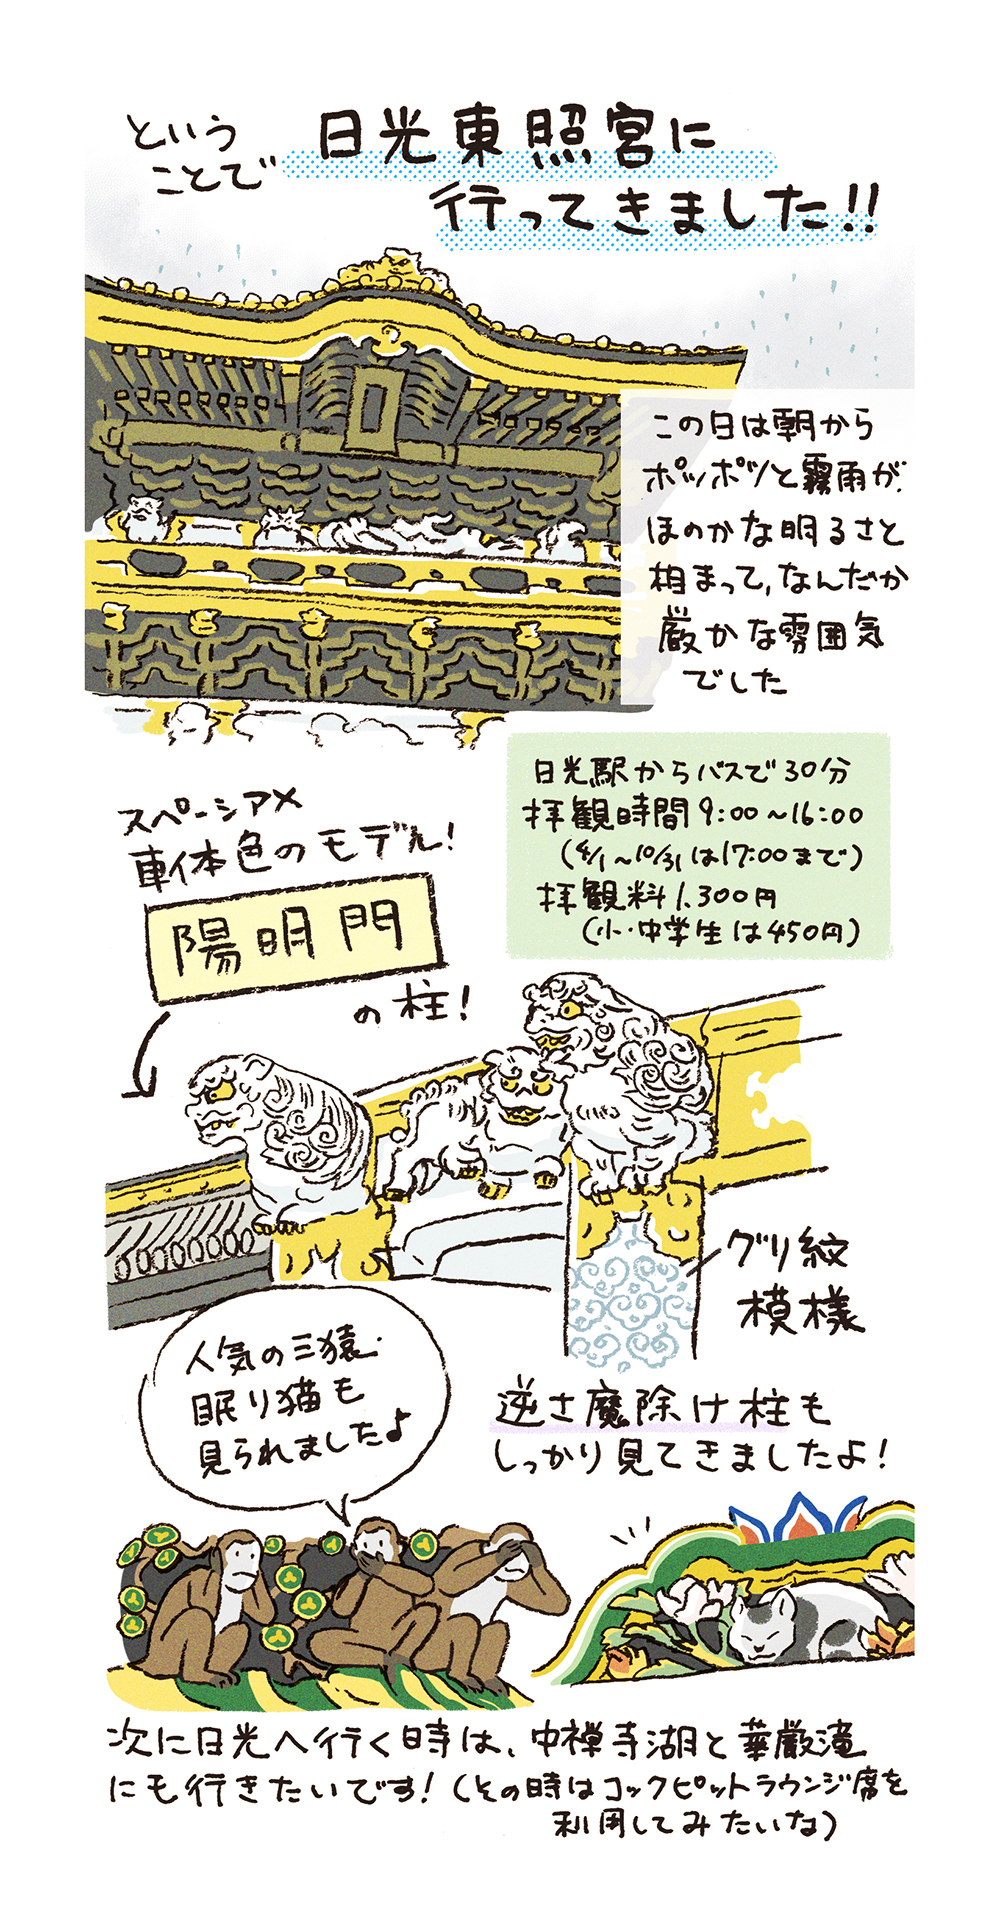 という
ことで
日光東照宮に
行ってきました!!
この日は朝から
ポツポツと霧雨が。
ほのかな明るさと
相まって、なんだか
厳かな雰囲気
でした
日光駅からバスで30分
拝観時間9:00～16:00
(4/1～10/31は17:00まで)
拝観料1,300円
(小・中学生は450円)
スペーシアX
車体色のモデル!
陽明門
の柱!
グリ紋
模様
人気の三猿・
眠り猫も
見られましたよ
逆さ魔除け柱も
しっかり見てきましたよ!
次に日光へ行く時は、中禅寺湖と華厳滝
にも行きたいです!(その時はコックピットラウンジ席を
利用してみたいな)